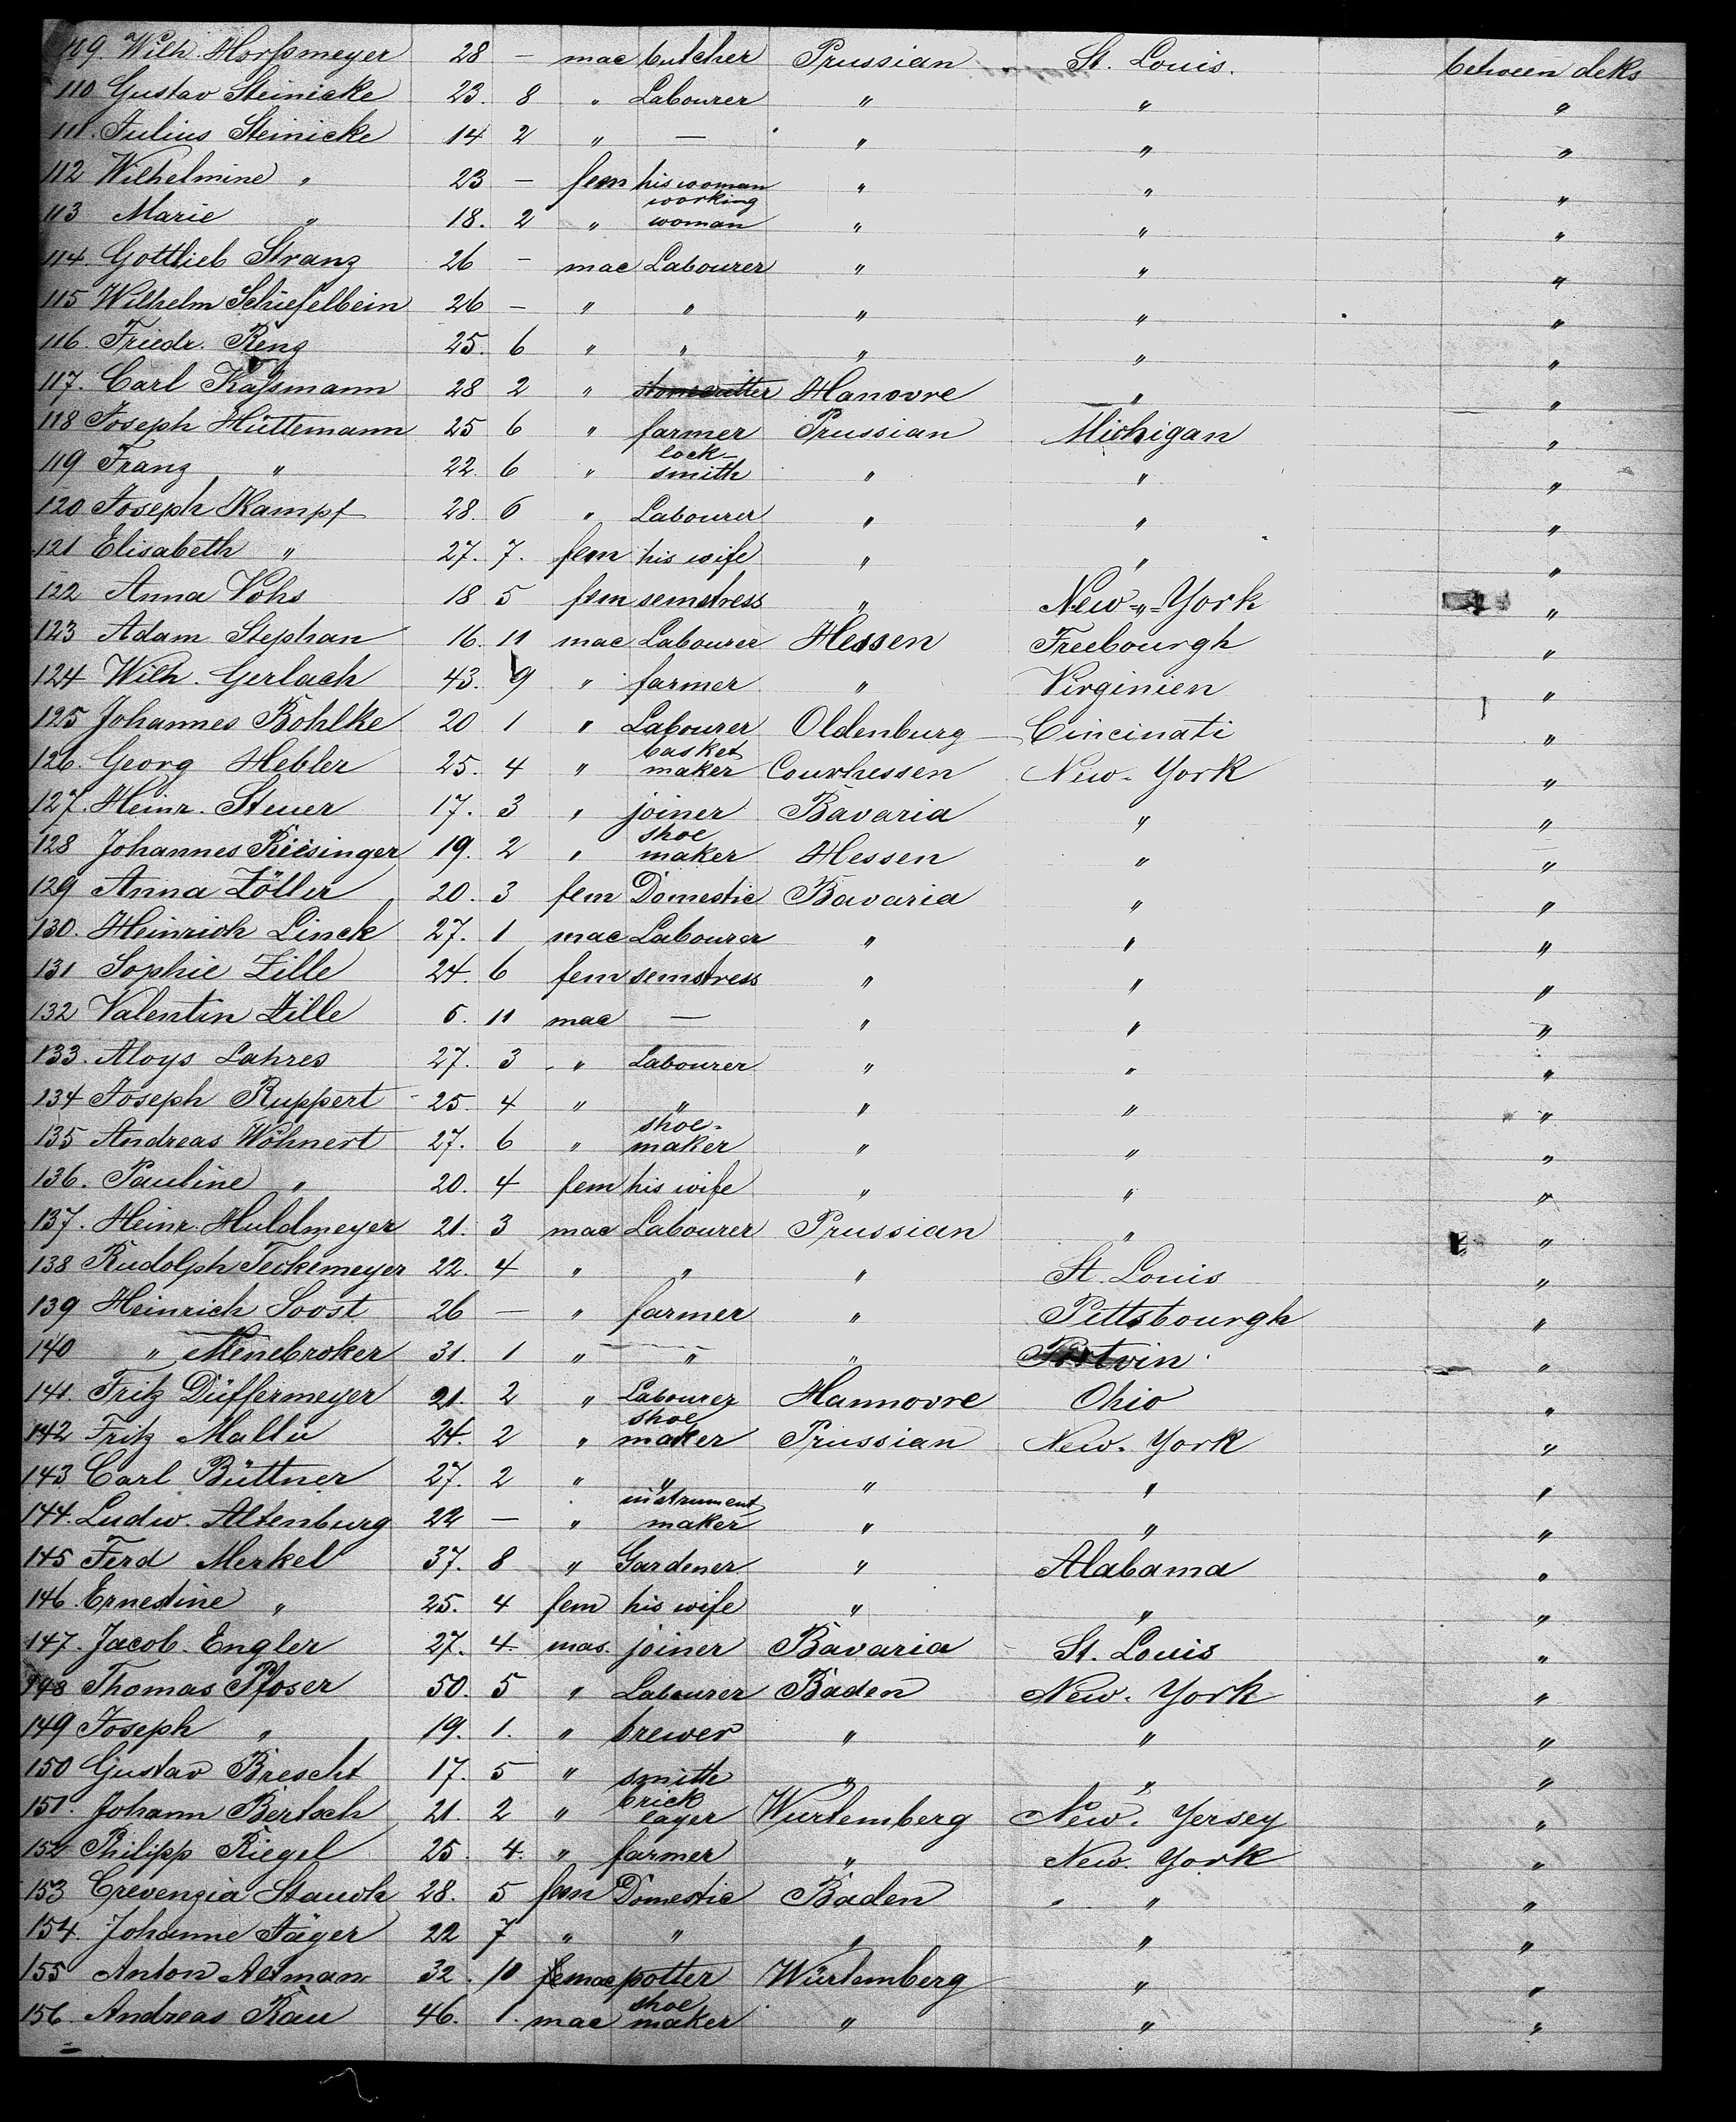 109. Wilh. Horssmeyer 28 — mac butcher Prussian St. Louis. between deks
110 Gustav Steinicke 23. 8 " Labourer " " "
111. Julius Steinicke 14 2 " — " " "
112 Wilhelmine " 23 — fem his woman " " "
113 Marie " 18. 2 " working woman " " "
114. Gottlieb Stranz 26 — mac Labourer " " "
115 Wilhelm Schiefelbein 26 — " " " " "
116. Friedr. Renz 25. 6 " " " " "
117. Carl Kassmann 28 2 " stonecutter Hanovre " "
118 Joseph Hüttemann 25 6 " farmer Prussian Michigan "
119 Franz " 22. 6 " lock-smith " " "
120 Joseph Kampf 28. 6 " Labourer " " "
121 Elisabeth " 27. 7. fem his wife " " "
122 Anna Vohs 18 5 fem semstress " New-"-York "
123 Adam Stephan 16. 11 mac Labourer Hessen Freebourgh "
124 Wilh. Gerlach 43. 9 " farmer " Virginien "
125 Johannes Bohlke 20 1 " Labourer Oldenburg Cincinati "
126. Georg Hebler 25. 4 " basket maker Courhessen New-York "
127. Heinr. Steuer 17. 3 " joiner Bavaria " "
128 Johannes Reisinger 19. 2 " shoe maker Hessen " "
129 Anna Zöller 20. 3 fem Domestic Bavaria " "
130. Heinrich Linck 27. 1 mac Labourer " " "
131 Sophie Zille 24. 6 fem semstress " " "
132 Valentin Zille 5. 11 mac — " " "
133. Aloys Lahres 27. 3 " Labourer " " "
134 Joseph Ruppert 25. 4 " " " " "
135 Andreas Wöhnert 27. 6 " shoe-maker " " "
136. Pauline " 20. 4 fem his wife " " "
137. Heinr. Huldmeyer 21. 3 mac Labourer Prussian " "
138 Rudolph Teckemeyer 22. 4 " " " St. Louis "
139 Heinrich Soost 26 — " farmer " Pettsbourgh "
140 " Menebroker 31. 1 " " " "
141. Fritz Düffermeyer 21. 2 " Labourer Hannovre Ohio "
142 Fritz 24. 2 " shoe maker Prussian New-York "
143 Carl Büttner 27. 2 " " " " "
144. Ludw. Altenburg 22 — " instrument maker " " "
145 Ferd Merkel 37. 8 " Gardener " Alabama "
146. Ernestine " 25. 4 fem his wife " " "
147. Jacob Engler 27. 4. mas. joiner Bavaria St. Louis "
148 Thomas Pfoser 50. 5 " Labourer Baden New-York "
149 Joseph " 19. 1. " brewer " " "
150 Gustav Brescht 17. 5 " smith " " "
151. Johann Bertsch 21. 2 " brick layer Wurtemberg New. Yersey "
152 Philipp Riegel 25. 4. " farmer " New. York "
153 Crevenzia Stauch 28. 5 fem Domestic Baden " "
154. Johanne Jäger 22 7 " " " " "
155 Anton Altman 32. 10 mac potter Würtemberg " "
156. Andreas Rau 46. 1. mac shoe maker " " "